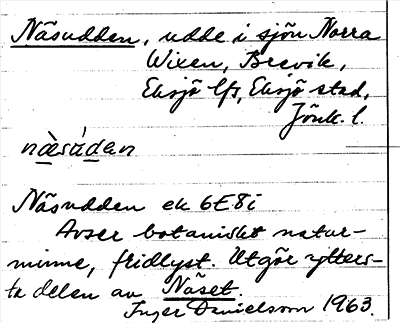 Näsudden, udde i sjön Norra
Wixen, Brevik,
Eksjö lfs, Eksjö stad,
Jönk. l.
næsúdan
Näsudden ek 6E8i
Avser botaniskt natur-
minne, fridlyst. Utgör ytters-
ta delen av Näset.
Inger Danielsson 1963.